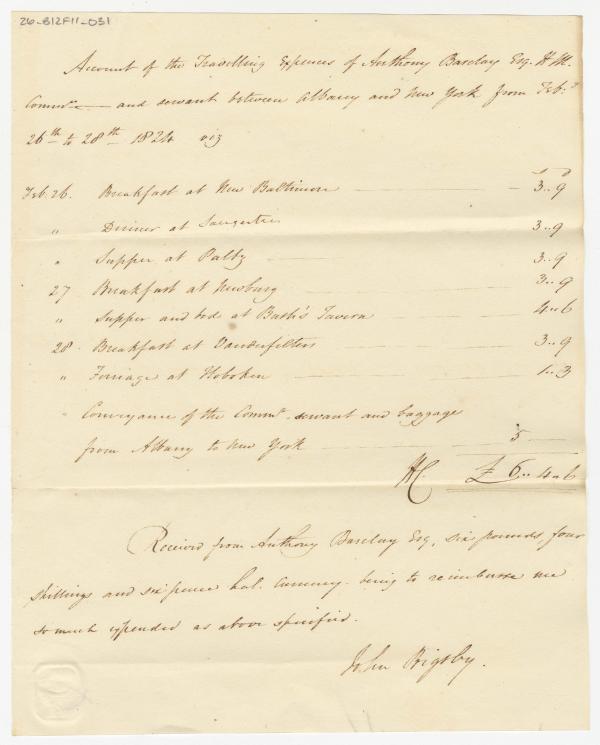 26-B12F11-031
Account of the Travelling Expences of Anthony Barclay Esq. H. M.
Commr. and servant between Albany and New York from Feb.
26th to 28th 1824 viz
Feb. 26. Breakfast at New Baltimore 3..9
" Dinner at Saugerties 3..9
" Supper at Paltz 3..9
27 Breakfast at Newburg 3..9
" Supper and bed at Bush's Tavern 4..6
28 Breakfast at Vanderfelters 3..9
" Ferriage at Hoboken 1..3
" Conveyance of the Commr. servant and baggage
from Albany to New York 5
HC. £ 6..4..6
Received from Anthony Barclay Esq. six pounds, four
shillings and sixpence Hal. Currency. being to reimburse me
so much expended as above specified.
John Bigsby.